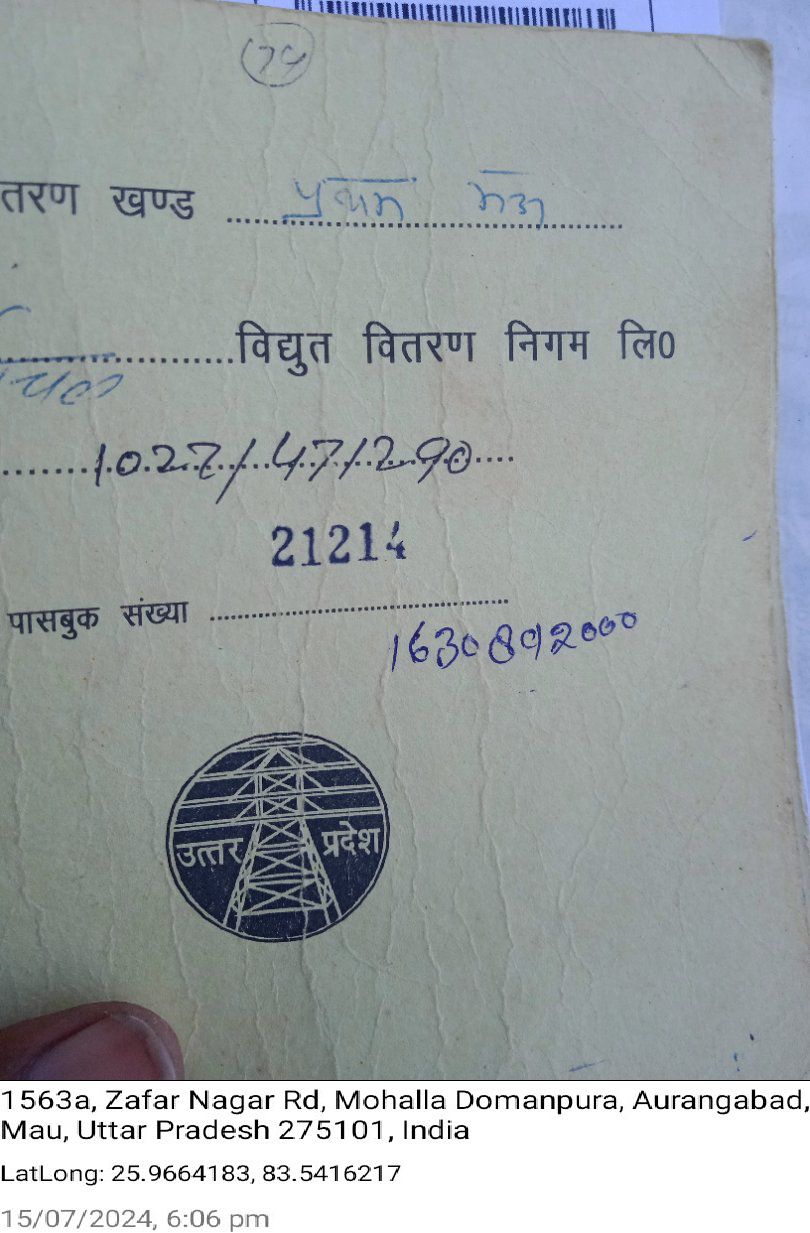 तरण खण्ड प्रथम मऊ
विद्युत वितरण निगम लि0
1027/47/290
21214
पासबुक संख्या
1630892000
उत्तर प्रदेश
1563a, Zafar Nagar Rd, Mohalla Domanpura, Aurangabad,
Mau, Uttar Pradesh 275101, India
LatLong: 25.9664183, 83.5416217
15/07/2024, 6:06 pm